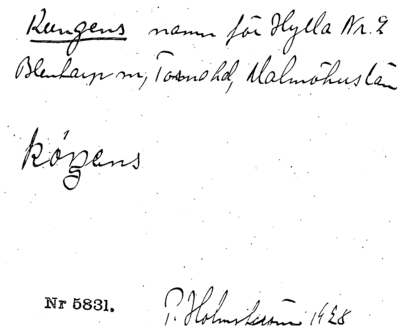 Kungens namn för Hylla Nr. 2
Blentarp sn, Torna hd, Malmöhus län
kógens
Nr 5831. P. Holmström 1928